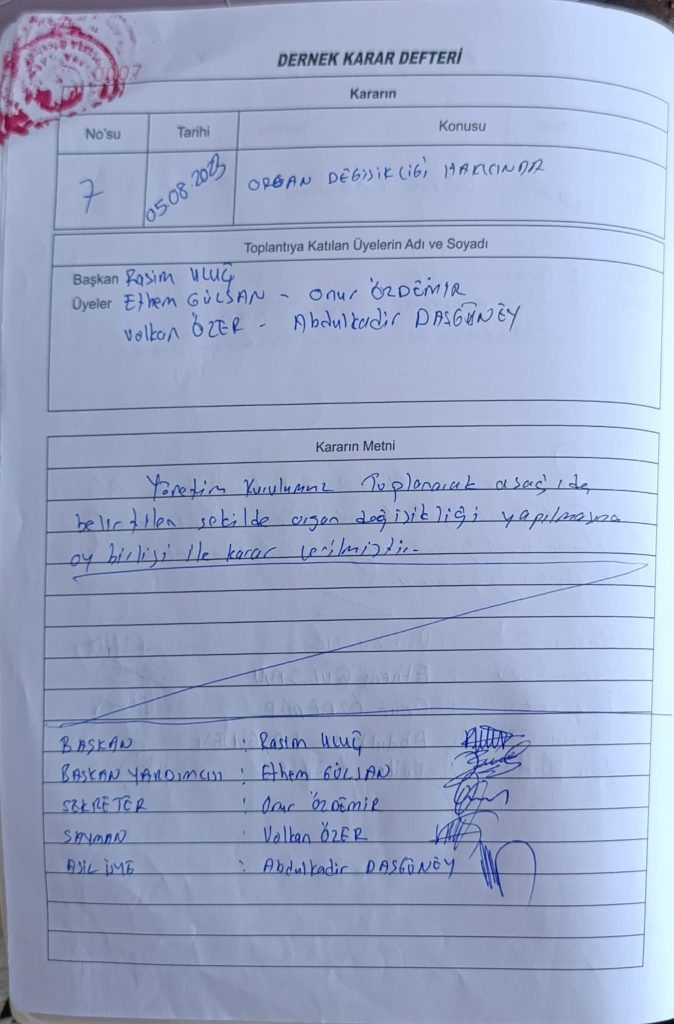 0007
DERNEK KARAR DEFTERİ
Kararın
No'su Tarihi Konusu
7 05.08.2023 ORGAN DEĞİŞİKLİĞİ HAKKINDA
Toplantıya Katılan Üyelerin Adı ve Soyadı
Başkan Rasim ULUÇ
Üyeler Ethem GÜLSAN - Onur ÖZDEMİR
Volkan ÖZER - Abdulkadir DAŞGÜNEY
Kararın Metni
Yönetim Kurulumuz Toplanarak aşağıda
belirtilen şekilde organ değişikliği yapılmasına
oy birliği ile karar verilmiştir.
BAŞKAN : Rasim ULUÇ
BAŞKAN YARDIMCISI : Ethem GÜLSAN
SEKRETER : Onur ÖZDEMİR
SAYMAN : Volkan ÖZER
ASİL ÜYE : Abdulkadir DAŞGÜNEY